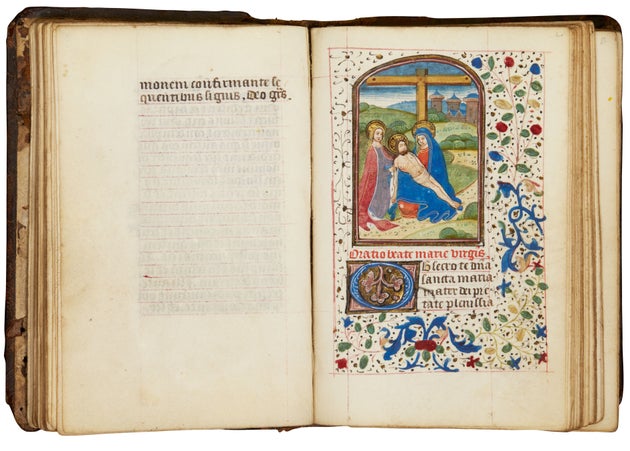 monem confirmante se
quentibus signis. Deo gr̄s.
Oratio beate marie virgis.
Obsecro te dn̄a
sancta maria
mater dei pie
tate plenissia